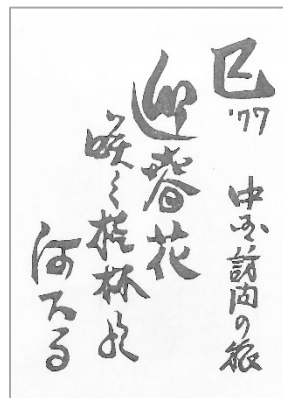 巳
'77
中国訪問の旅
迎春花
咲く桂林の
河下る